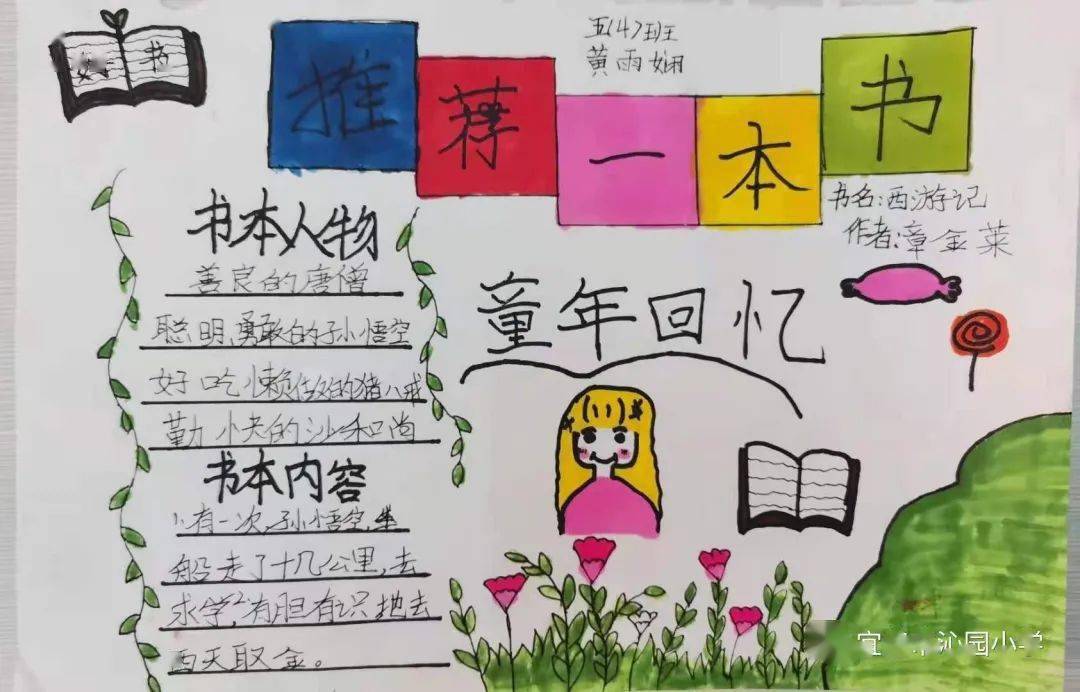 好书
推荐一本书
五(4)班
黄雨娴
书名:西游记
作者:章金莱
童年回忆
书本人物
善良的唐僧
聪明,勇敢的孙悟空
好吃懒做的猪八戒
勤小老的沙和尚
书本内容
1、有一次,孙悟空,坐
船走了十几公里,去
求学,2有胆有识,地去
西天取金。
沁园小